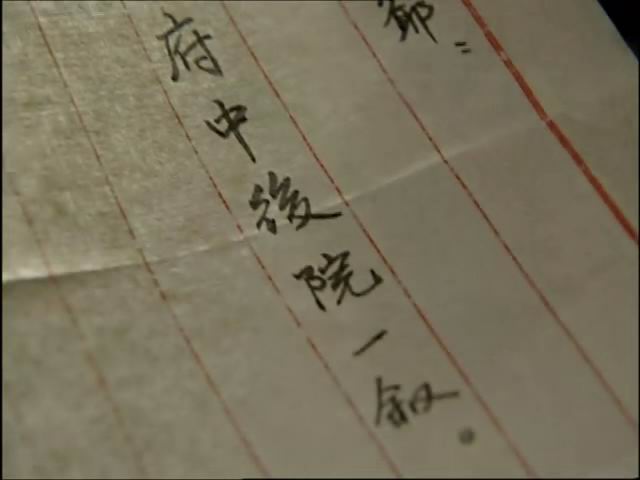 府中後院一叙。